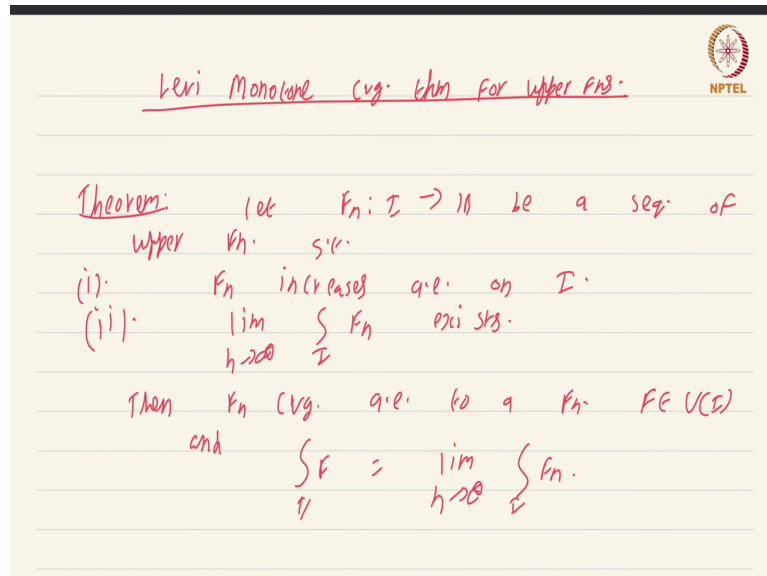 Levi Monotone Cvg. thm for upper fns.
NPTEL
Theorem: Let Fn : I → ℝ be a seq. of
upper fn. s.t.
(i). Fn increases a.e. on I.
(ii). lim n→∞ ∫_I Fn exists.
Then Fn cvg. a.e. to a fn. F ∈ U(I)
and
∫_I F = lim n→∞ ∫_I Fn.